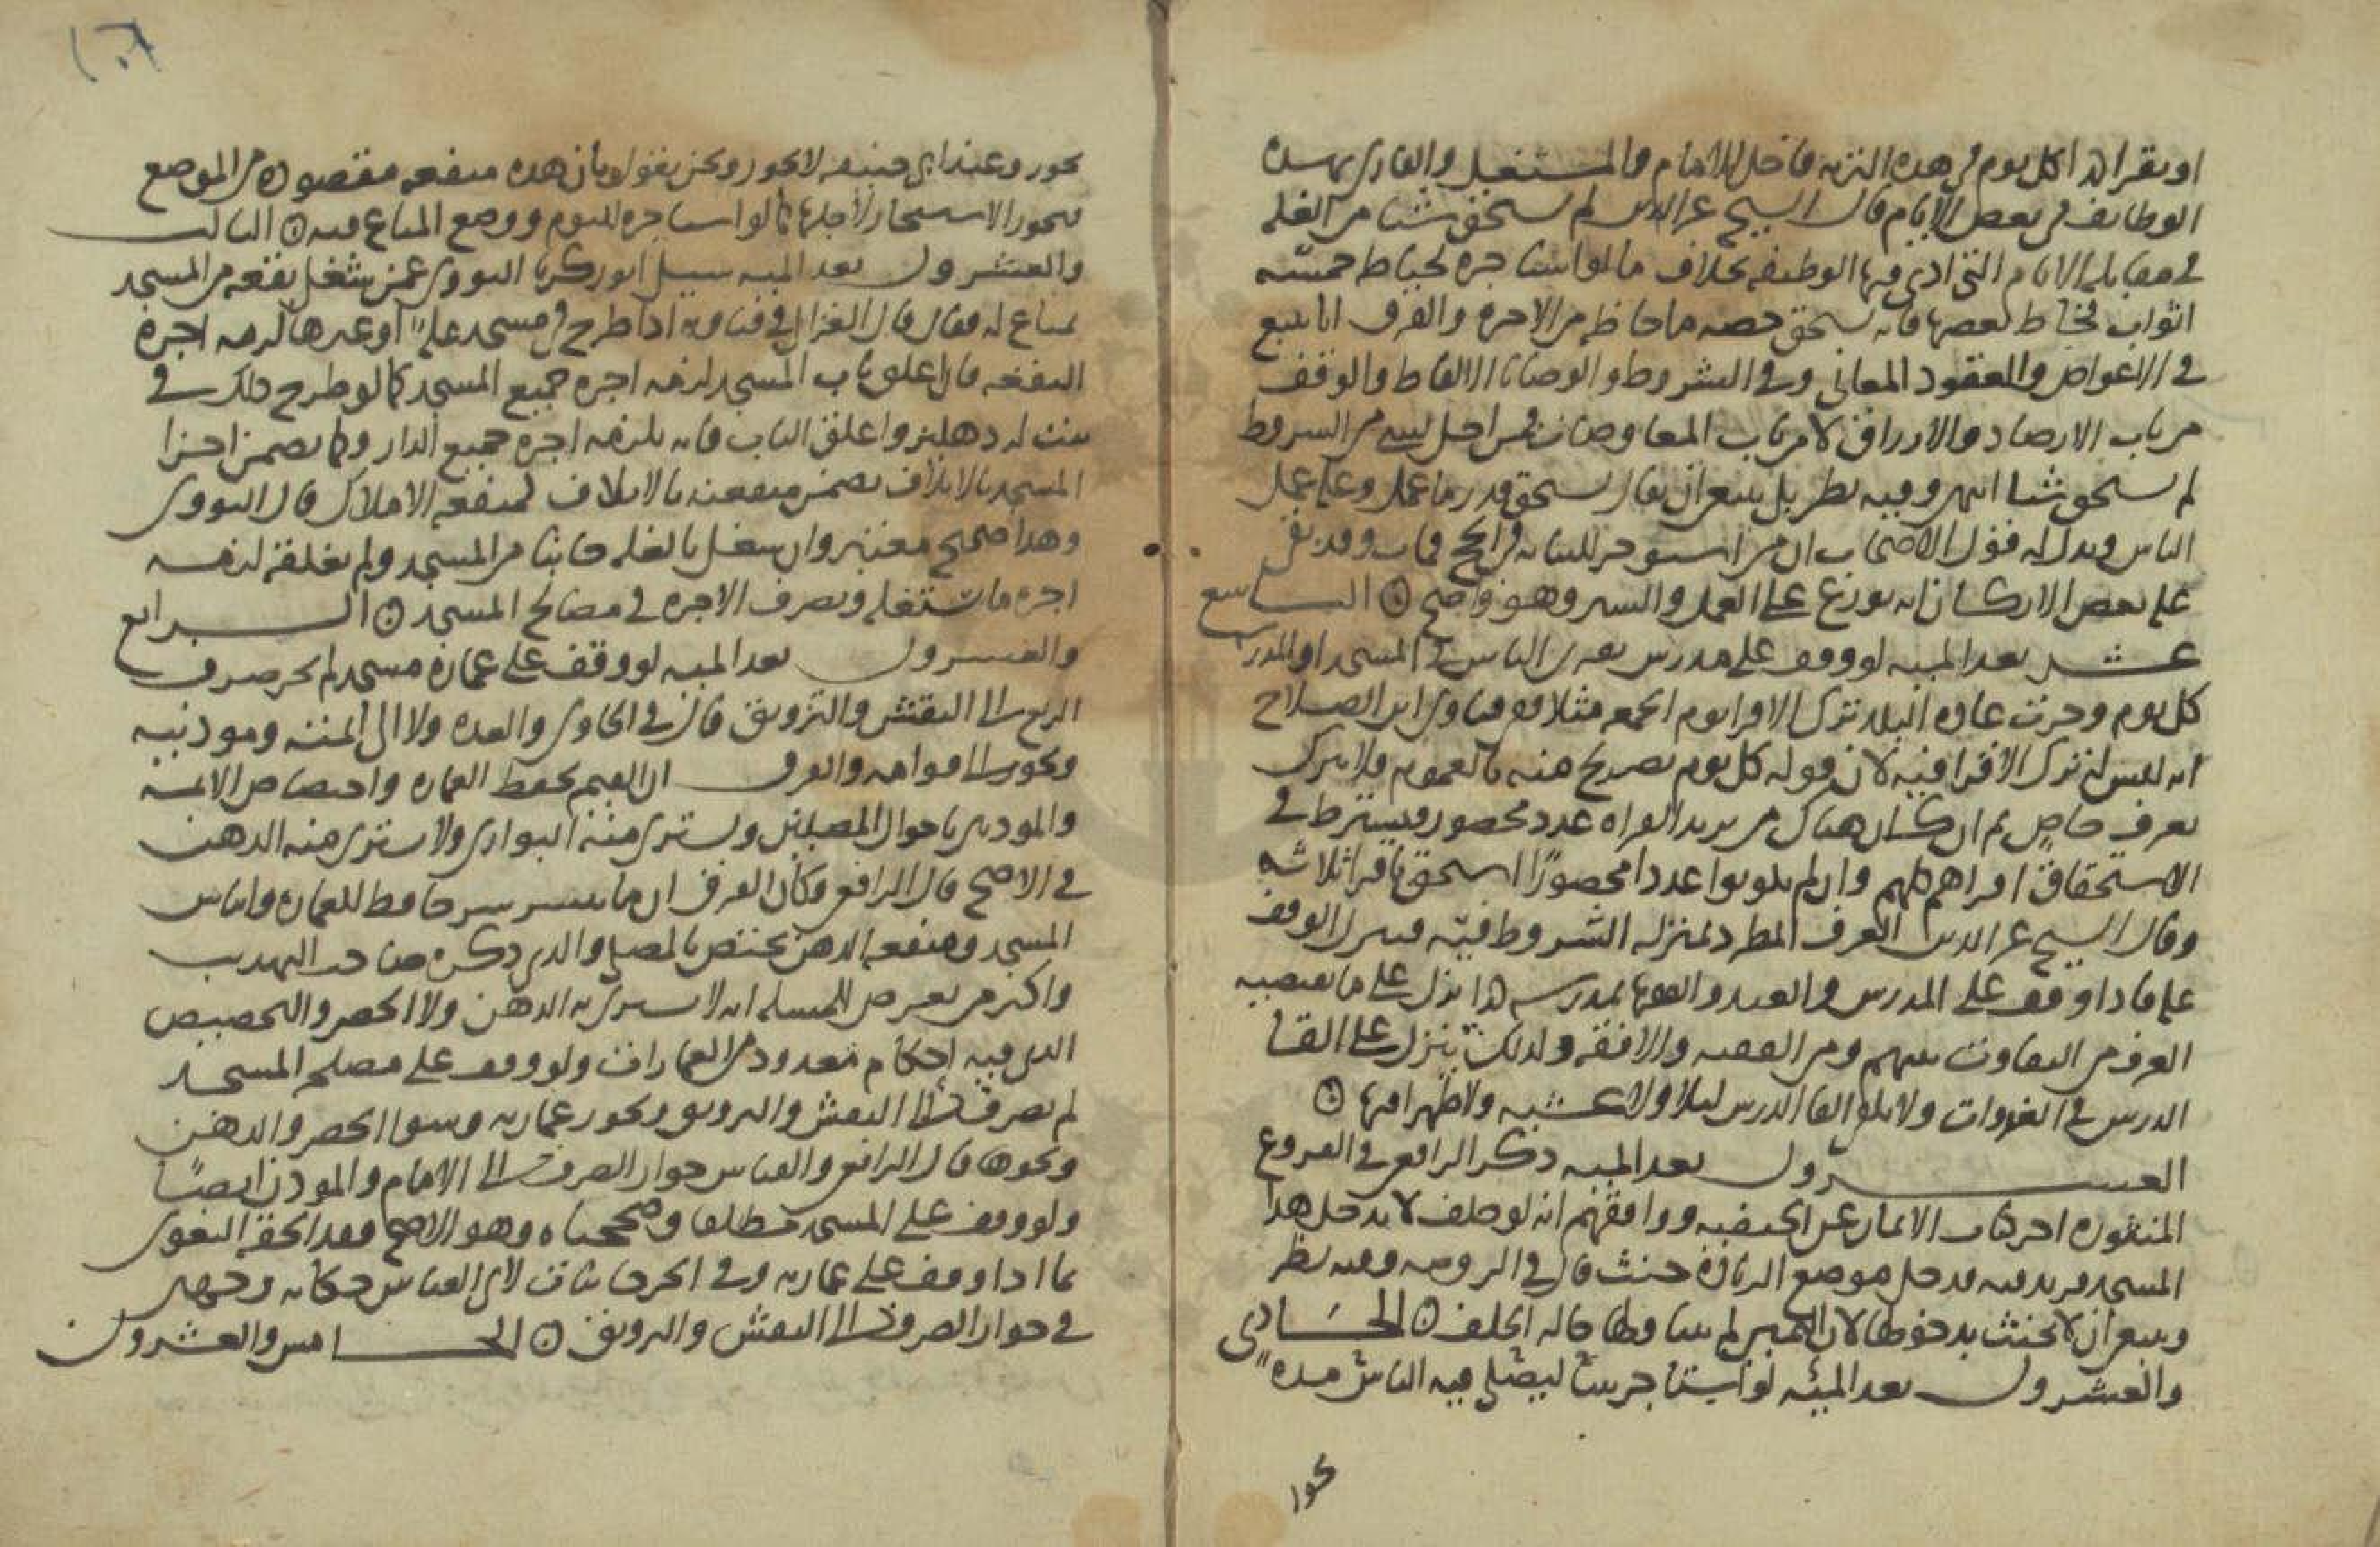 او يقرا كل يوم في هذه التربة فاخل الامام والمشتغل والقارى بهذه
الوظايف في بعض الايام قال الشيخ عز الدين لم يستحق شيا من الغلة
في مقابلة الايام التي ادى فيها الوظيفة بخلاف ما لو استاجره لخياط خمسة
اثواب فخاط بعضها فانه يستحق حصة ما خاطه من الاجرة والفرق انا نتبع
في الاعواض والعقود المعاني وفي الشروط والوصايا الالفاظ والوقف
من باب الارصاد والارزاق لا من باب المعاوضات فمن اخل بشي من الشروط
لم يستحق شيا انتهى وفيه نظر بل ينبغي ان يقال يستحق قدر ما عمل وعليه عمل
الناس ويدل له قول الاصحاب ان من استوجر للنيابة في الحج فمات وقد بقي
على بعض الاركان انه يوزع على العمل والسير وهو واضح التاسع
عشر بعد المية لو وقف على مدرس يقرى الناس في المسجد او المدرسة
كل يوم وجرت عادة البلد بترك الاقرا يوم الجمعة مثلا ففي فتاوى ابن الصلاح
انه ليس له ترك الاقرا فيه لان قوله كل يوم تصريح منه بالعموم فلا يترك
بعرف خاص ثم ان كان هناك من يريد القراه عدد محصور فيشترط في
الاستحقاق اقراهم كلهم وان لم يكونوا عددا محصورا استحق باقرا ثلاثة
وقال الشيخ عز الدين العرف المطرد بمنزلة الشروط فينزل الوقف
عليه فاذا وقف على المدرس والمعيد والفقها بمدرسة كذا نزل على ما يقتضيه
العرف من التفاوت بينهم ومن الفقيه والافقه ولذلك ينزل على القا
الدرس في الغدوات ولا يكفي القا الدرس ليلا ولا عشية ولا ظهرا فيها
العشرون بعد المية ذكر الرافعي في الفروع
المنثورة اخر كتاب الايمان عن الحنفية ووافقهم انه لو حلف لا يدخل هذا
المسجد فزيد فيه فدخل موضع الزيادة حنث قال في الروضة وفيه نظر
وينبغي ان لا يحنث بدخولها لان اليمين لم تتناولها حالة الحلف الحادى
والعشرون بعد المية لو استاجر بيتا ليصلى فيه الناس مدة
يجوز
يجوز وعند ابي حنيفة لا يجوز ونحن نقول بان هذه منفعة مقصودة من الموضع
فيجوز الاستيجار لاجلها كما لو استاجره للنوم ووضع المتاع فيه الثالث
والعشرون بعد المية سيل ابو زكريا النووى عمن شغل بقعة من المسجد
بمتاع له فقال قال الغزالي في فتاويه اذا طرح في مسجد غلة او غيرها لزمه اجرة
البقعة فان اغلق باب المسجد لزمه اجرة جميع المسجد كما لو طرح ذلك في
بيت له دهليز واغلق الباب فانه يلزمه اجرة جميع الدار وكما يضمن اجزا
المسجد بالاتلاف يضمن منفعته بالاتلاف كمنفعة الاملاك قال النووى
وهذا صحيح معتبر وان شغل بالغلة جانبا من المسجد ولم يغلقه لزمه
اجرة ما شغله ويصرف الاجرة في مصالح المسجد الرابع
والعشرون بعد المية لو وقف على عمارة مسجد لم يجز صرف
الريع الى النقش والتزويق قال في الحاوى والعدة ولا الى ايمته وموذنيه
ويجوز الى قوامه والفرق ان القيم يحفظ العمارة واختصاص الايمة
والموذنين باحوال المصلين ويشترى منه البوارى ولا يشترى منه الدهن
في الاصح قال الرافعي وكان الفرق ان ما يفرش حافظ للعمارة
المسجد ومنفعة الدهن تختص بالمصلي والذي ذكره صاحب التهذيب
واكثر من تعرض للمسلة انه لا يشترى به الدهن ولا الحصر والتجصيص
الذي فيه احكام معدود من العمارات ولو وقف على مصلحة المسجد
لم يصرف الى النقش والتزويق ويجوز عمارته وشرا الحصر والدهن
ونحوها قال الرافعي والقياس جواز الصرف الى الامام والموذن ايضا
ولو وقف على المسجد مطلقا وصححناه وهو الاصح فقد الحقه البغوى
بما اذا وقف على عمارته وفي الجرجانيات لابي العباس حكاية وجهين
في جواز الصرف الى النقش والتزويق الخامس والعشرون